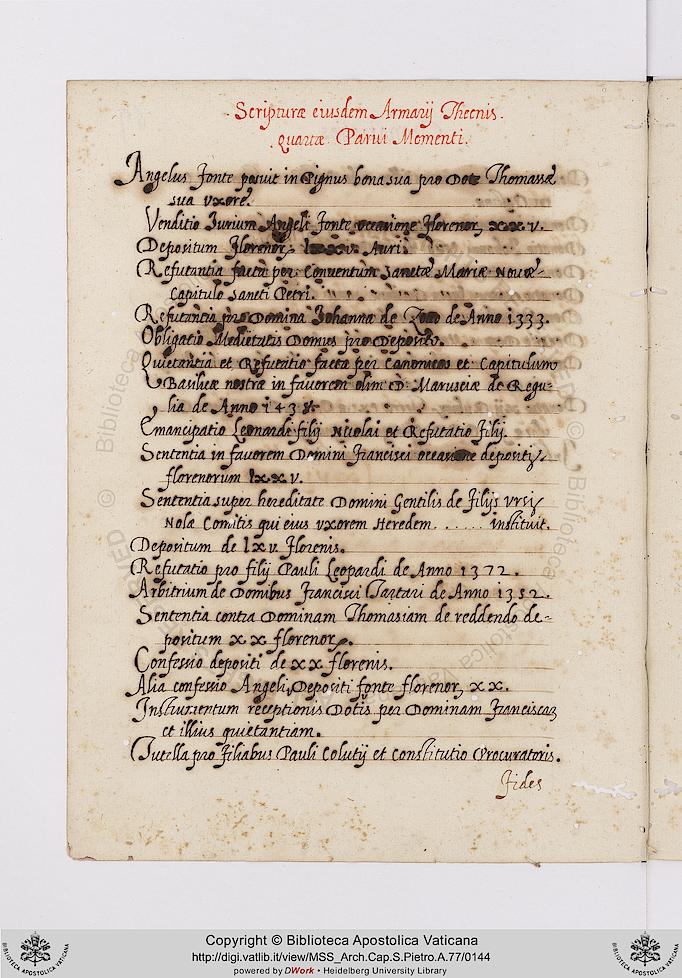 Scripturæ eiusdem Armarij Thecnis.
quartæ Parui Mementi.
Angelus fonte posuit in Pignus bona sua pro Dote Thomassæ
sua uxore.
Venditio Jurium Angeli fonte occasione florenor, xx v.
Depositum florenor, lxxv. Auri.
Refutantia facta per Conventum Sanctæ Mariæ Nouæ
Capitulo Sancti Petri.
Refutantia pro Domina Johanna de de Anno 1333.
Obligatio Medietatis Domus pro Deposito.
Quietantia et Refutatio facta per Canonicos et Capitulum
Basilicæ nostræ in fauorem olim D. Marusciæ de Regu-
lia de Anno 1438.
Emancipatio Leonardi filij Nicolai et Refutatio filij.
Sententia in fauorem Domini Francisci occasione depositi
florenorum lxxv.
Sententia super hereditate Domini Gentilis de filijs Ursi
Nolæ Comitis qui eius uxorem Heredem ...... instituit.
Depositum de lxv. florenis.
Refutatio pro filij Pauli Leopardi de Anno 1372.
Arbitrium de Domibus Francisci Tartari de Anno 1352.
Sententia contra Dominam Thomasiam de reddendo de-
positum xx florenor.
Confessio depositi de xx florenis.
Alia confessio Angeli, Depositi fonte florenor, xx.
Instrumentum receptionis Dotis per Dominam Franciscam
et illius quietantiam.
Tutella pro filiabus Pauli Colutij et Constitutio Procuratoris.
Fides
Copyright © Biblioteca Apostolica Vaticana
http://digi.vatlib.it/view/MSS_Arch.Cap.S.Pietro.A.77/0144
powered by DWork • Heidelberg University Library